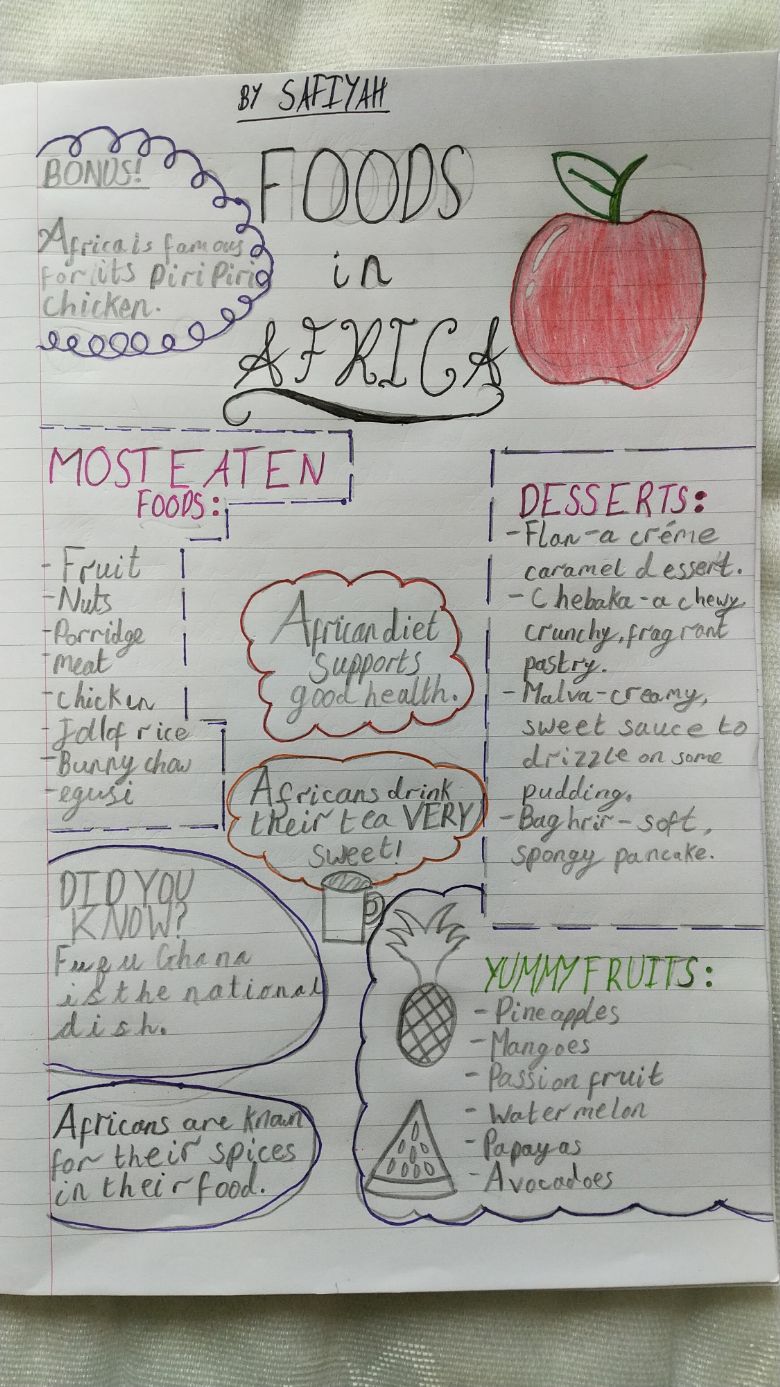 BY SAFIYAH
FOODS
in
AFRICA
BONUS!
Africa is famous
for its Piri Piri
chicken.
MOST EATEN
FOODS:
- Fruit
- Nuts
- Porridge
- meat
- chicken
- Jollof rice
- Bunny chow
- egusi
African diet
supports
good health.
Africans drink
their tea VERY
sweet!
DESSERTS:
- Flan - a créme
caramel dessert.
- Chebaka - a chewy
crunchy, fragrant
pastry.
- Malva - creamy,
sweet sauce to
drizzle on some
pudding.
- Baghrir - soft,
spongy pancake.
DID YOU
KNOW?
Fugu Ghana
is the national
dish.
Africans are known
for their spices
in their food.
YUMMY FRUITS:
- Pineapples
- Mangoes
- Passion fruit
- Watermelon
- Papayas
- Avocadoes